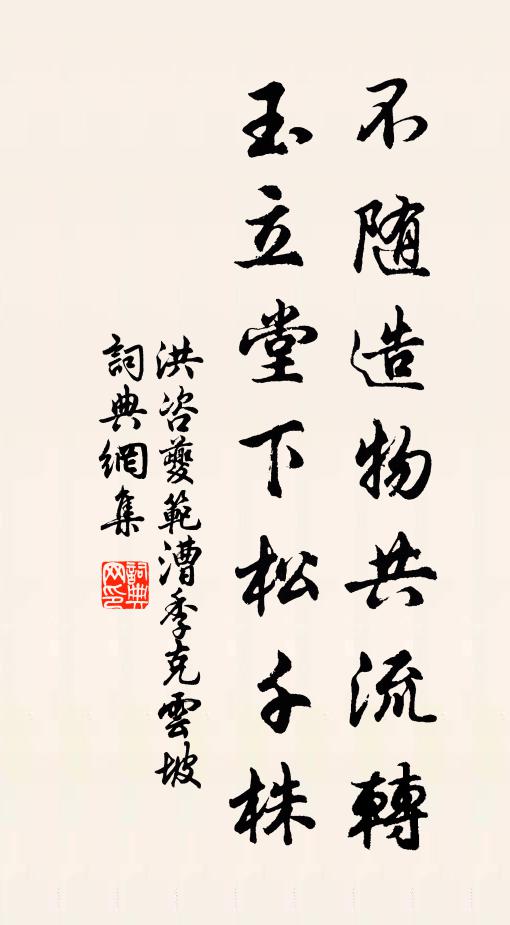 不随造物共流轉
玉立堂下松千株
洪咨夔範漕季克雲坡
詞典網集
詞典网印